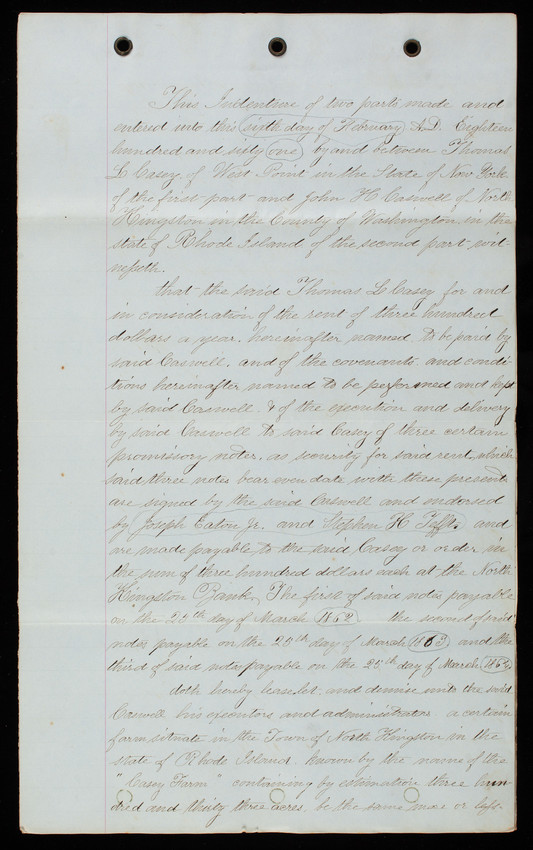 This Indenture of two parts made and
entered into this sixth day of February A.D. Eighteen
hundred and sixty one by and between Thomas
L Casey, of West Point in the State of New York
of the first part and John H Caswell of North
Kingston in the County of Washington in the
state of Rhode Island of the second part wit-
nesseth.
that the said Thomas L Casey for and
in consideration of the rent of three hundred
dollars a year, hereinafter named, to be paid by
said Caswell, and of the covenants and condi-
tions hereinafter named to be performed and kept
by said Caswell & of the execution and delivery
by said Caswell to said Casey of three certain
promissory notes, as security for said rent, which
said three notes bear even date with these presents
are signed by the said Caswell and endorsed
by Joseph Eaton Jr. and Stephen H Tefft, and
are made payable to the said Casey or order in
the sum of three hundred dollars each at the North
Kingston Bank. The first of said notes payable
on the 25th day of March 1862 the second of said
notes payable on the 25th day of March 1863 and the
third of said notes payable on the 25th day of March
doth hereby lease let and demise unto the said
Caswell his executors and administrators a certain
farm situate in the Town of North Kingston in the
state of Rhode Island known by the name of the
"Casey Farm" containing by estimation three hun-
dred and thirty three acres, be the same more or less.